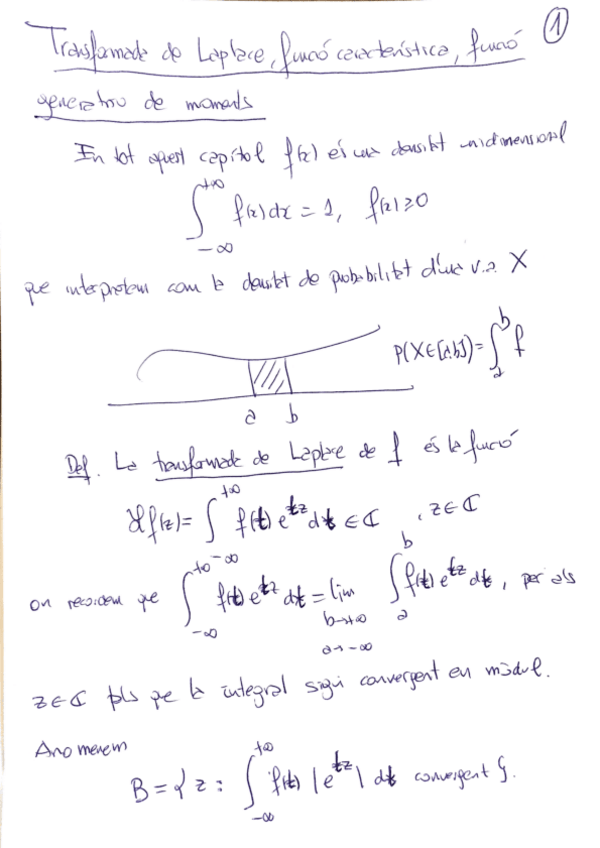 ①
Transformada de Laplace, funció característica, funció
generatriu de moments
En tot aquest capítol f(x) és una densitat unidimensional
∫_{-∞}^{+∞} f(x)dx = 1, f(x) ≥ 0
que interpretem com la densitat de probabilitat d'una v.a. X
P(X∈[a,b]) = ∫_a^b f
a b
Def. La transformada de Laplace de f és la funció
ℒf(z) = ∫_{-∞}^{+∞} f(t) e^{tz} dt ∈ ℂ, z ∈ ℂ
on recordem que ∫_{-∞}^{+∞} f(t) e^{tz} dt = lim_{b→+∞ a→-∞} ∫_a^b f(t) e^{tz} dt, per als
z ∈ ℂ tals que la integral sigui convergent en mòdul.
Anomenem
B = { z : ∫_{-∞}^{+∞} f(t) |e^{tz}| dt convergent }.